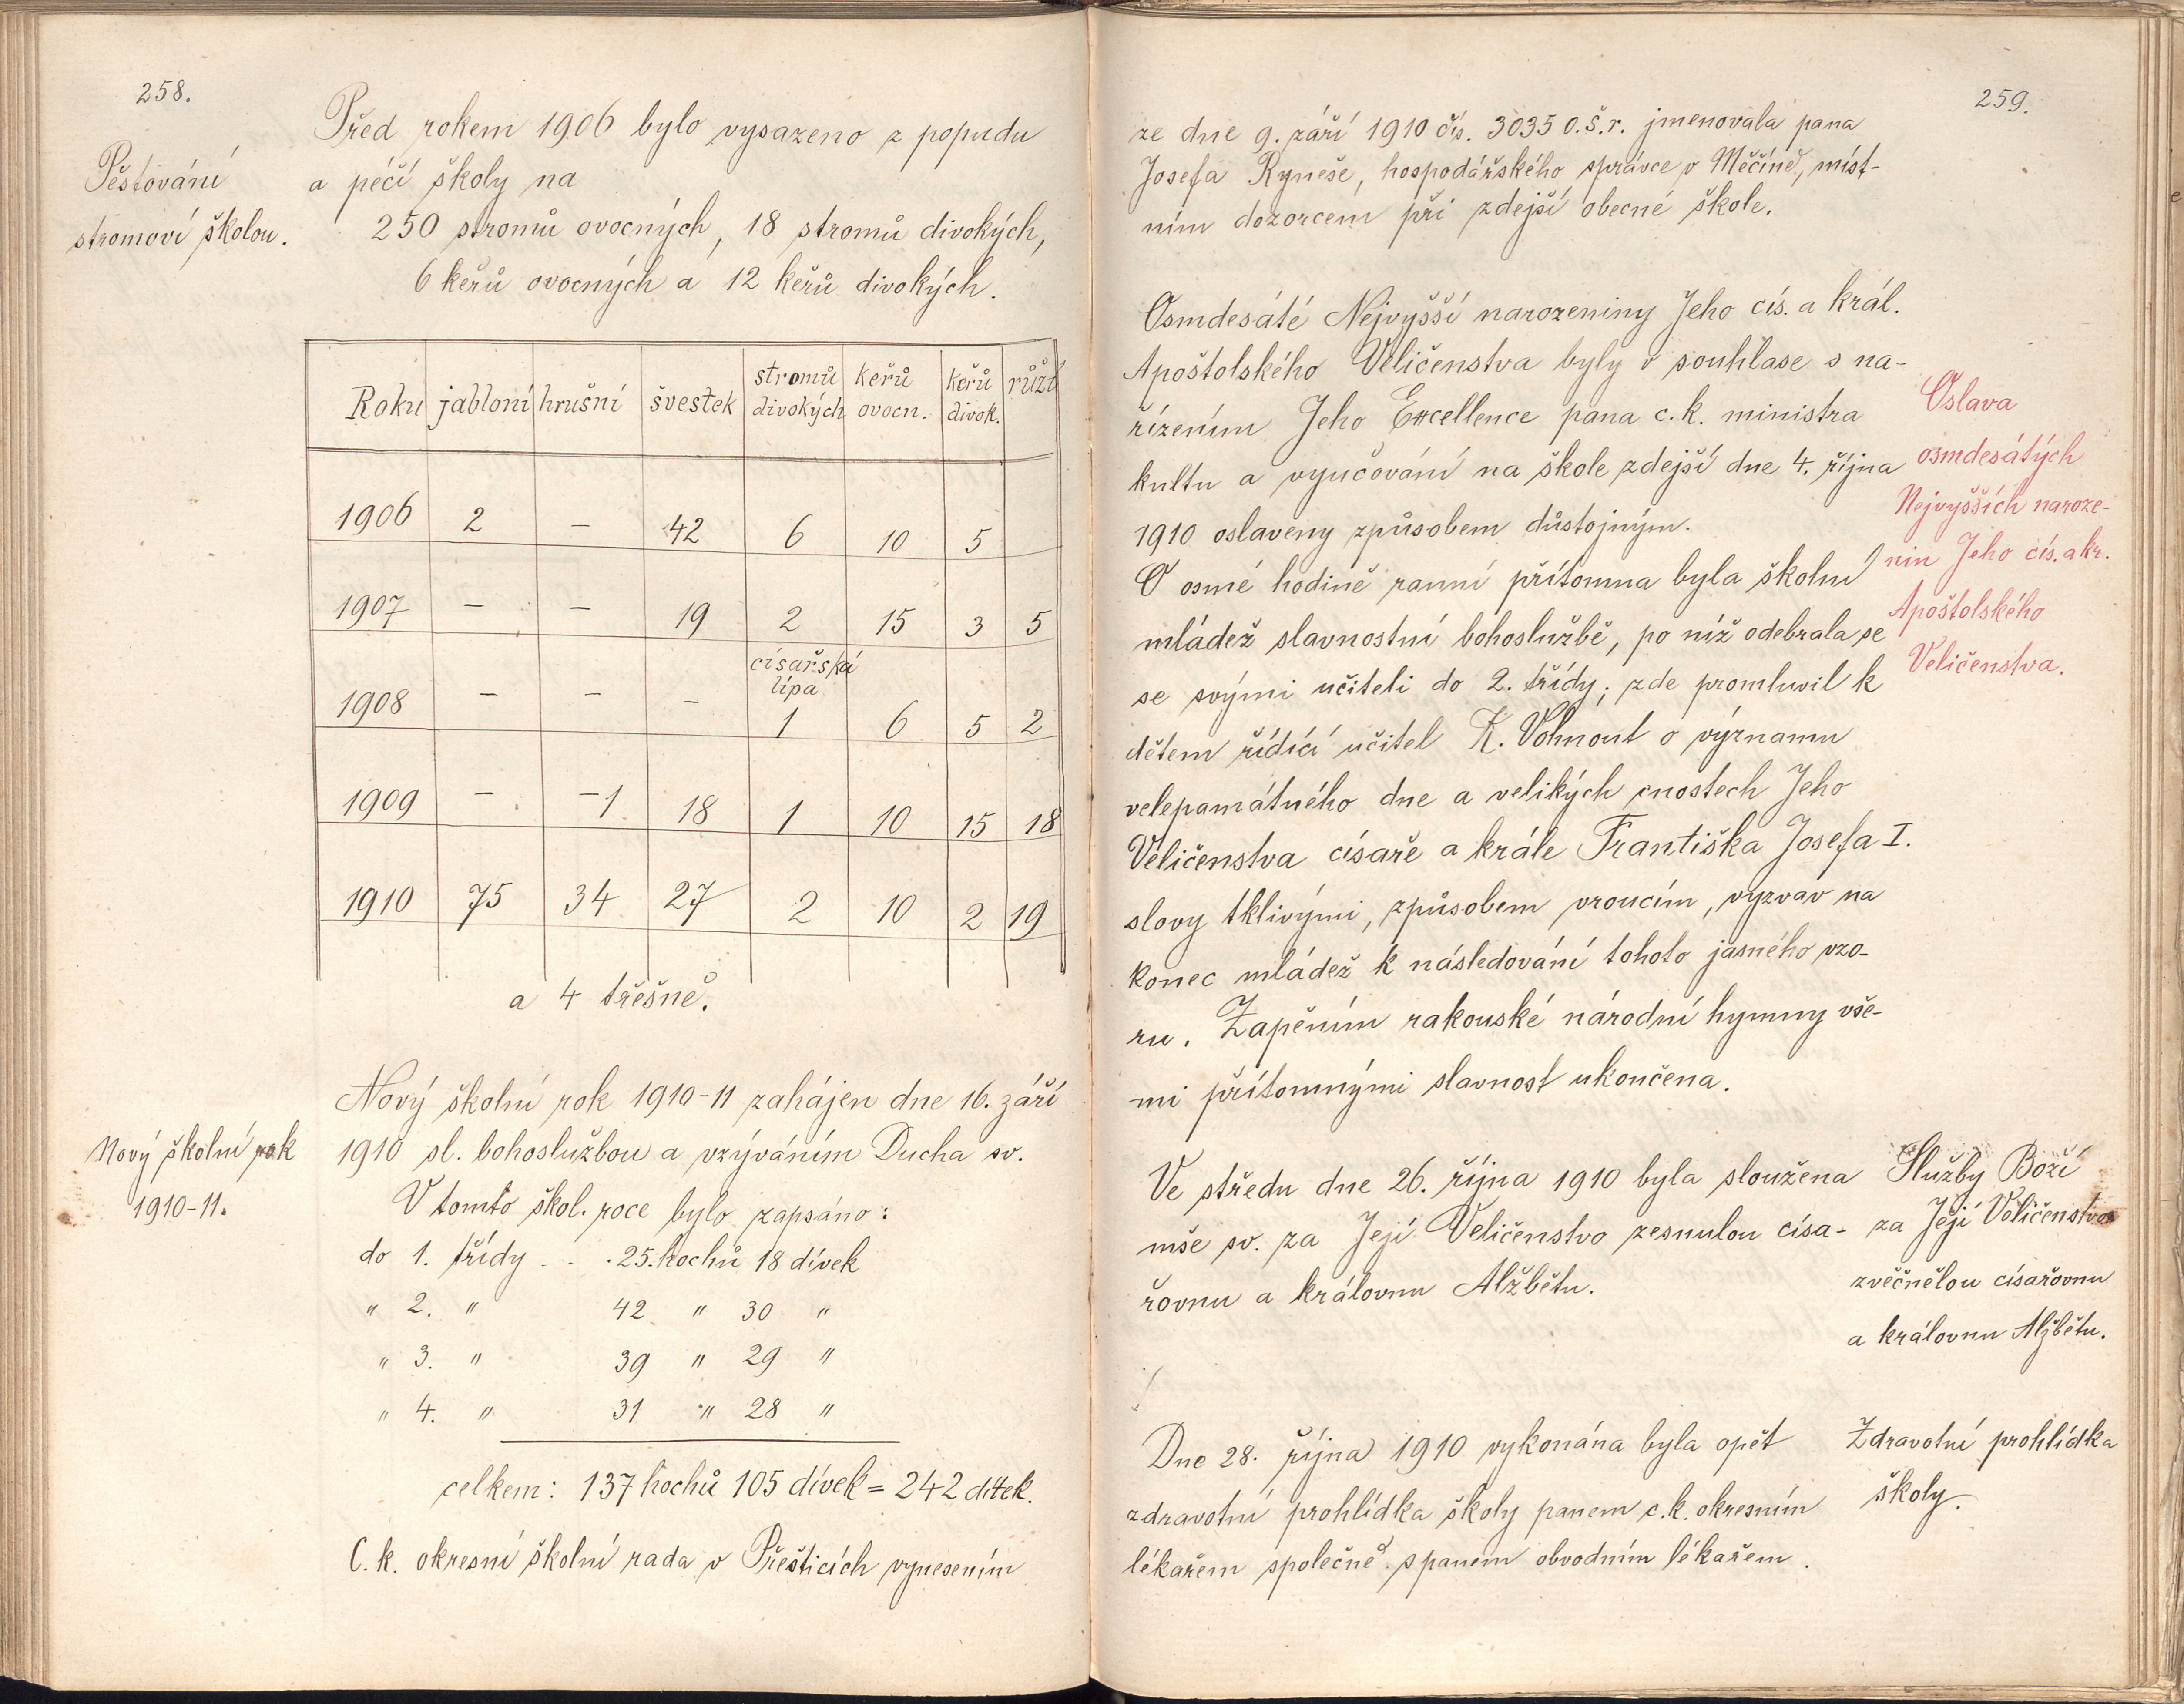 258.
Pěstování
stromoví školou.
Před rokem 1906 bylo vysazeno z popudu
a péčí školy na
250 stromů ovocných, 18 stromů divokých,
6 keřů ovocných a 12 keřů divokých.
Roku jabloní hrušní švestek stromů divokých keřů ovocn. keřů divok. růží
1906 2 – 42 6 10 5
1907 – – 19 2 15 3 5
1908 – – – císařská lípa 1 6 5 2
1909 – –1 18 1 10 15 18
1910 75 34 27 2 10 2 19
a 4 třešně.
Nový školní rok
1910-11.
Nový školní rok 1910-11 zahájen dne 16. září
1910 sl. bohoslužbou a vzýváním Ducha sv.
V tomto škol. roce bylo zapsáno:
do 1. třídy . . . 25. hochů 18 dívek
" 2. " 42 " 30 "
" 3. " 39 " 29 "
" 4. " 31 " 28 "
celkem: 137 hochů 105 dívek = 242 dítek.
C. k. okresní školní rada v Přešticích vynesením
259.
ze dne 9. září 1910 čís. 3035 o.š.r. jmenovala pana
Josefa Ryneše, hospodářského správce v Měčíně, míst-
ním dozorcem při zdejší obecné škole.
Osmdesáté Nejvyšší narozeniny Jeho cís. a král.
Apoštolského Veličenstva byly v souhlase s na-
řízením Jeho Excellence pana c.k. ministra
kultu a vyučování na škole zdejší dne 4. října
1910 oslaveny způsobem důstojným.
O osmé hodině ranní přítomna byla školní
mládež slavnostní bohoslužbě, po níž odebrala se
se svými učiteli do 2. třídy; zde promluvil k
dětem řídící učitel K. Vohnout o významu
velepamátného dne a velikých cnostech Jeho
Veličenstva císaře a krále Františka Josefa I.
slovy tklivými, způsobem vroucím, vyzvav na
konec mládež k následování tohoto jasného vzo-
ru. Zapěním rakouské národní hymny vše-
mi přítomnými slavnost ukončena.
Oslava
osmdesátých
Nejvyšších naroze-
nin Jeho cís. a kr.
Apoštolského
Veličenstva.
Ve středu dne 26. října 1910 byla sloužena
mše sv. za Její Veličenstvo zesnulou císa-
řovnu a královnu Alžbětu.
Služby Boží
za Její Veličenstvo
zvěčnělou císařovnu
a královnu Alžbětu.
Dne 28. října 1910 vykonána byla opět
zdravotní prohlídka školy panem c.k. okresním
lékařem společně s panem obvodním lékařem.
Zdravotní prohlídka
školy.